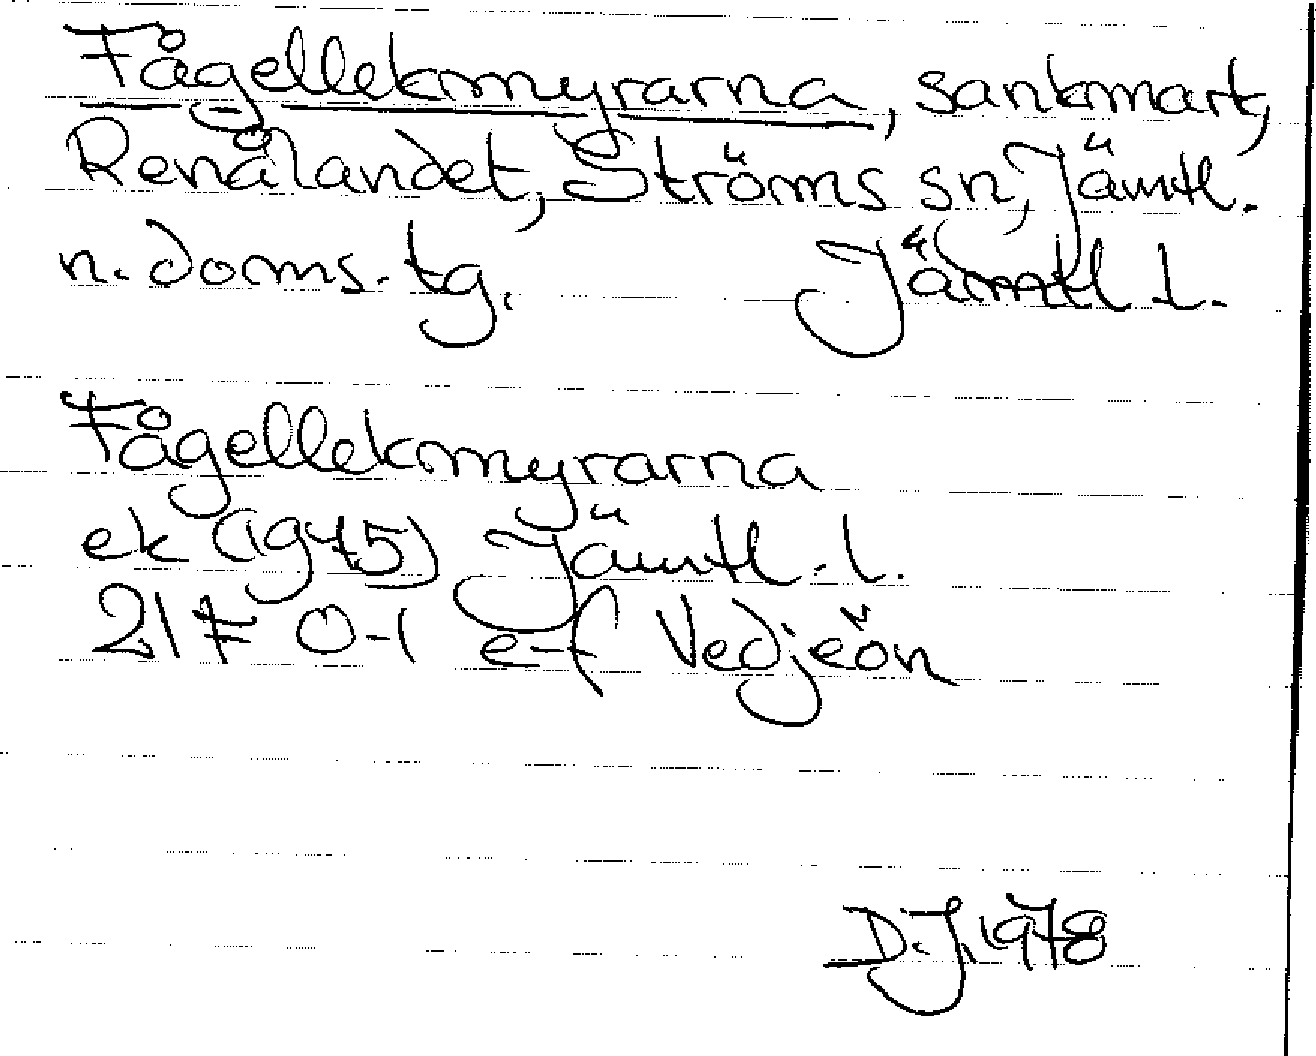 Fågellekmyrarna, sankmark,
Renålandet, Ströms sn, Jämtl.
n. doms. tg. Jämtl l.
Fågellekmyrarna
ek (1975) Jämtl. l.
21 F 0-1 e-f Vedjeön
D.J. 1978